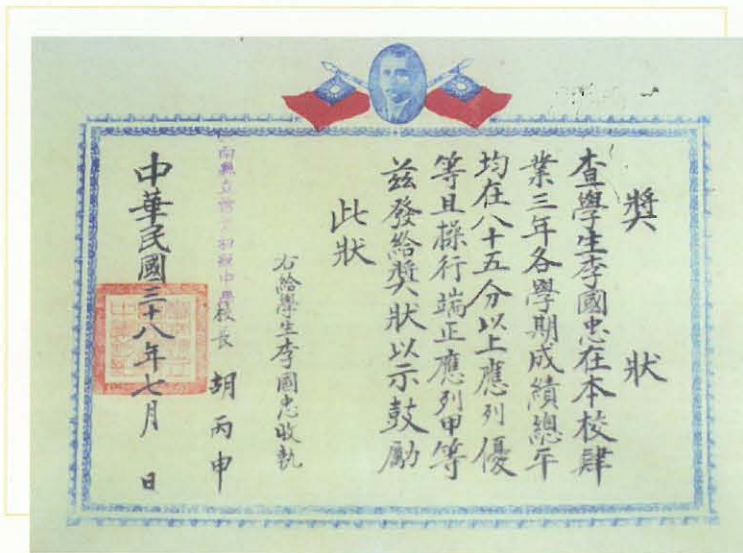 獎狀
查學生李國忠在本校肄
業三年各學期成績總平
均在八十五分以上應列優
等且操行端正應列甲等
茲發給獎狀以示鼓勵
此狀
右給學生李國忠收執
南縣立初級中學校長 胡丙申
中華民國三十八年七月 日